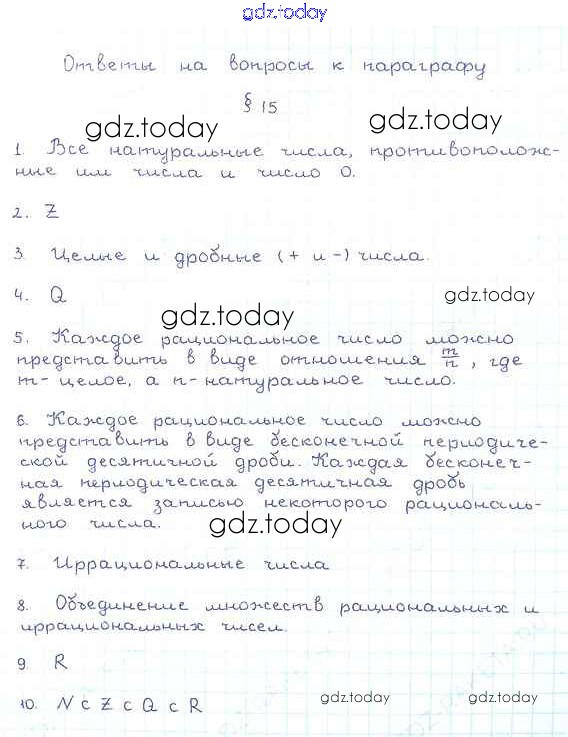 gdz.today
Ответы на вопросы к параграфу
§ 15
gdz.today
gdz.today
1. Все натуральные числа, противополож-
ные им числа и число 0.
2. Z
3. Целые и дробные (+ и -) числа.
4. Q
gdz.today
gdz.today
5. Каждое рациональное число можно
представить в виде отношения m/n, где
m- целое, а n- натуральное число.
6. Каждое рациональное число можно
представить в виде бесконечной периодиче-
ской десятичной дроби. Каждая бесконеч-
ная периодическая десятичная дробь
является записью некоторого рациональ-
ного числа.
gdz.today
7. Иррациональные числа
8. Объединение множеств рациональных и
иррациональных чисел.
9. R
10. N c Z c Q c R
gdz.today
gdz.today